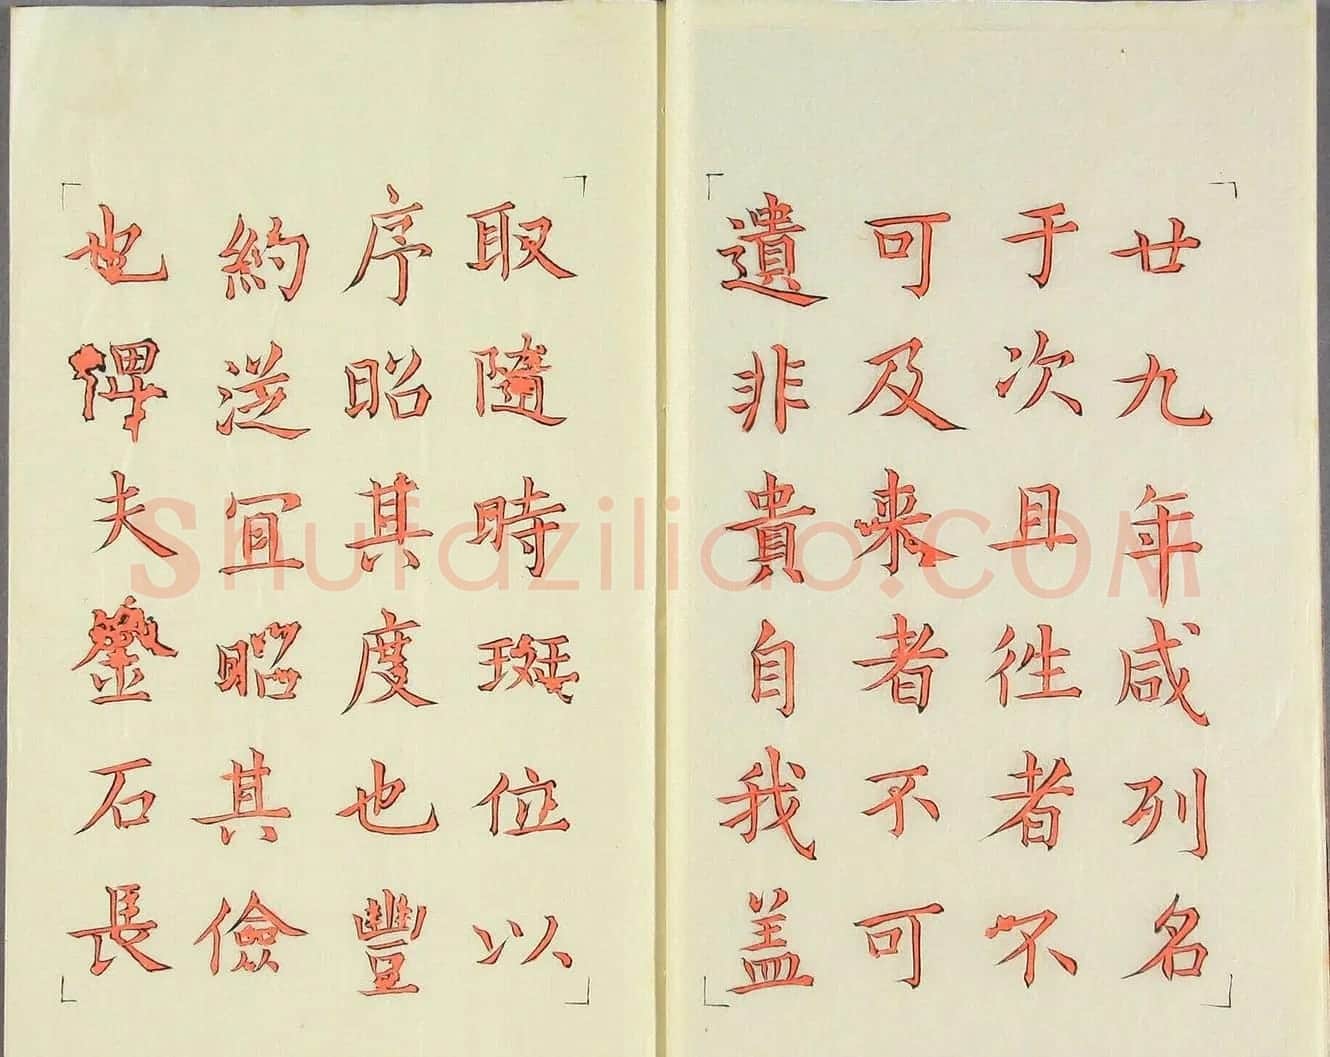 廿九年咸列名
于次且徃者不
可及来者不可
遺非貴自我盖
取隨時斑位以
序昭其度也豐
約從宜昭其儉
也俾夫石長
Shufaziliao.COM